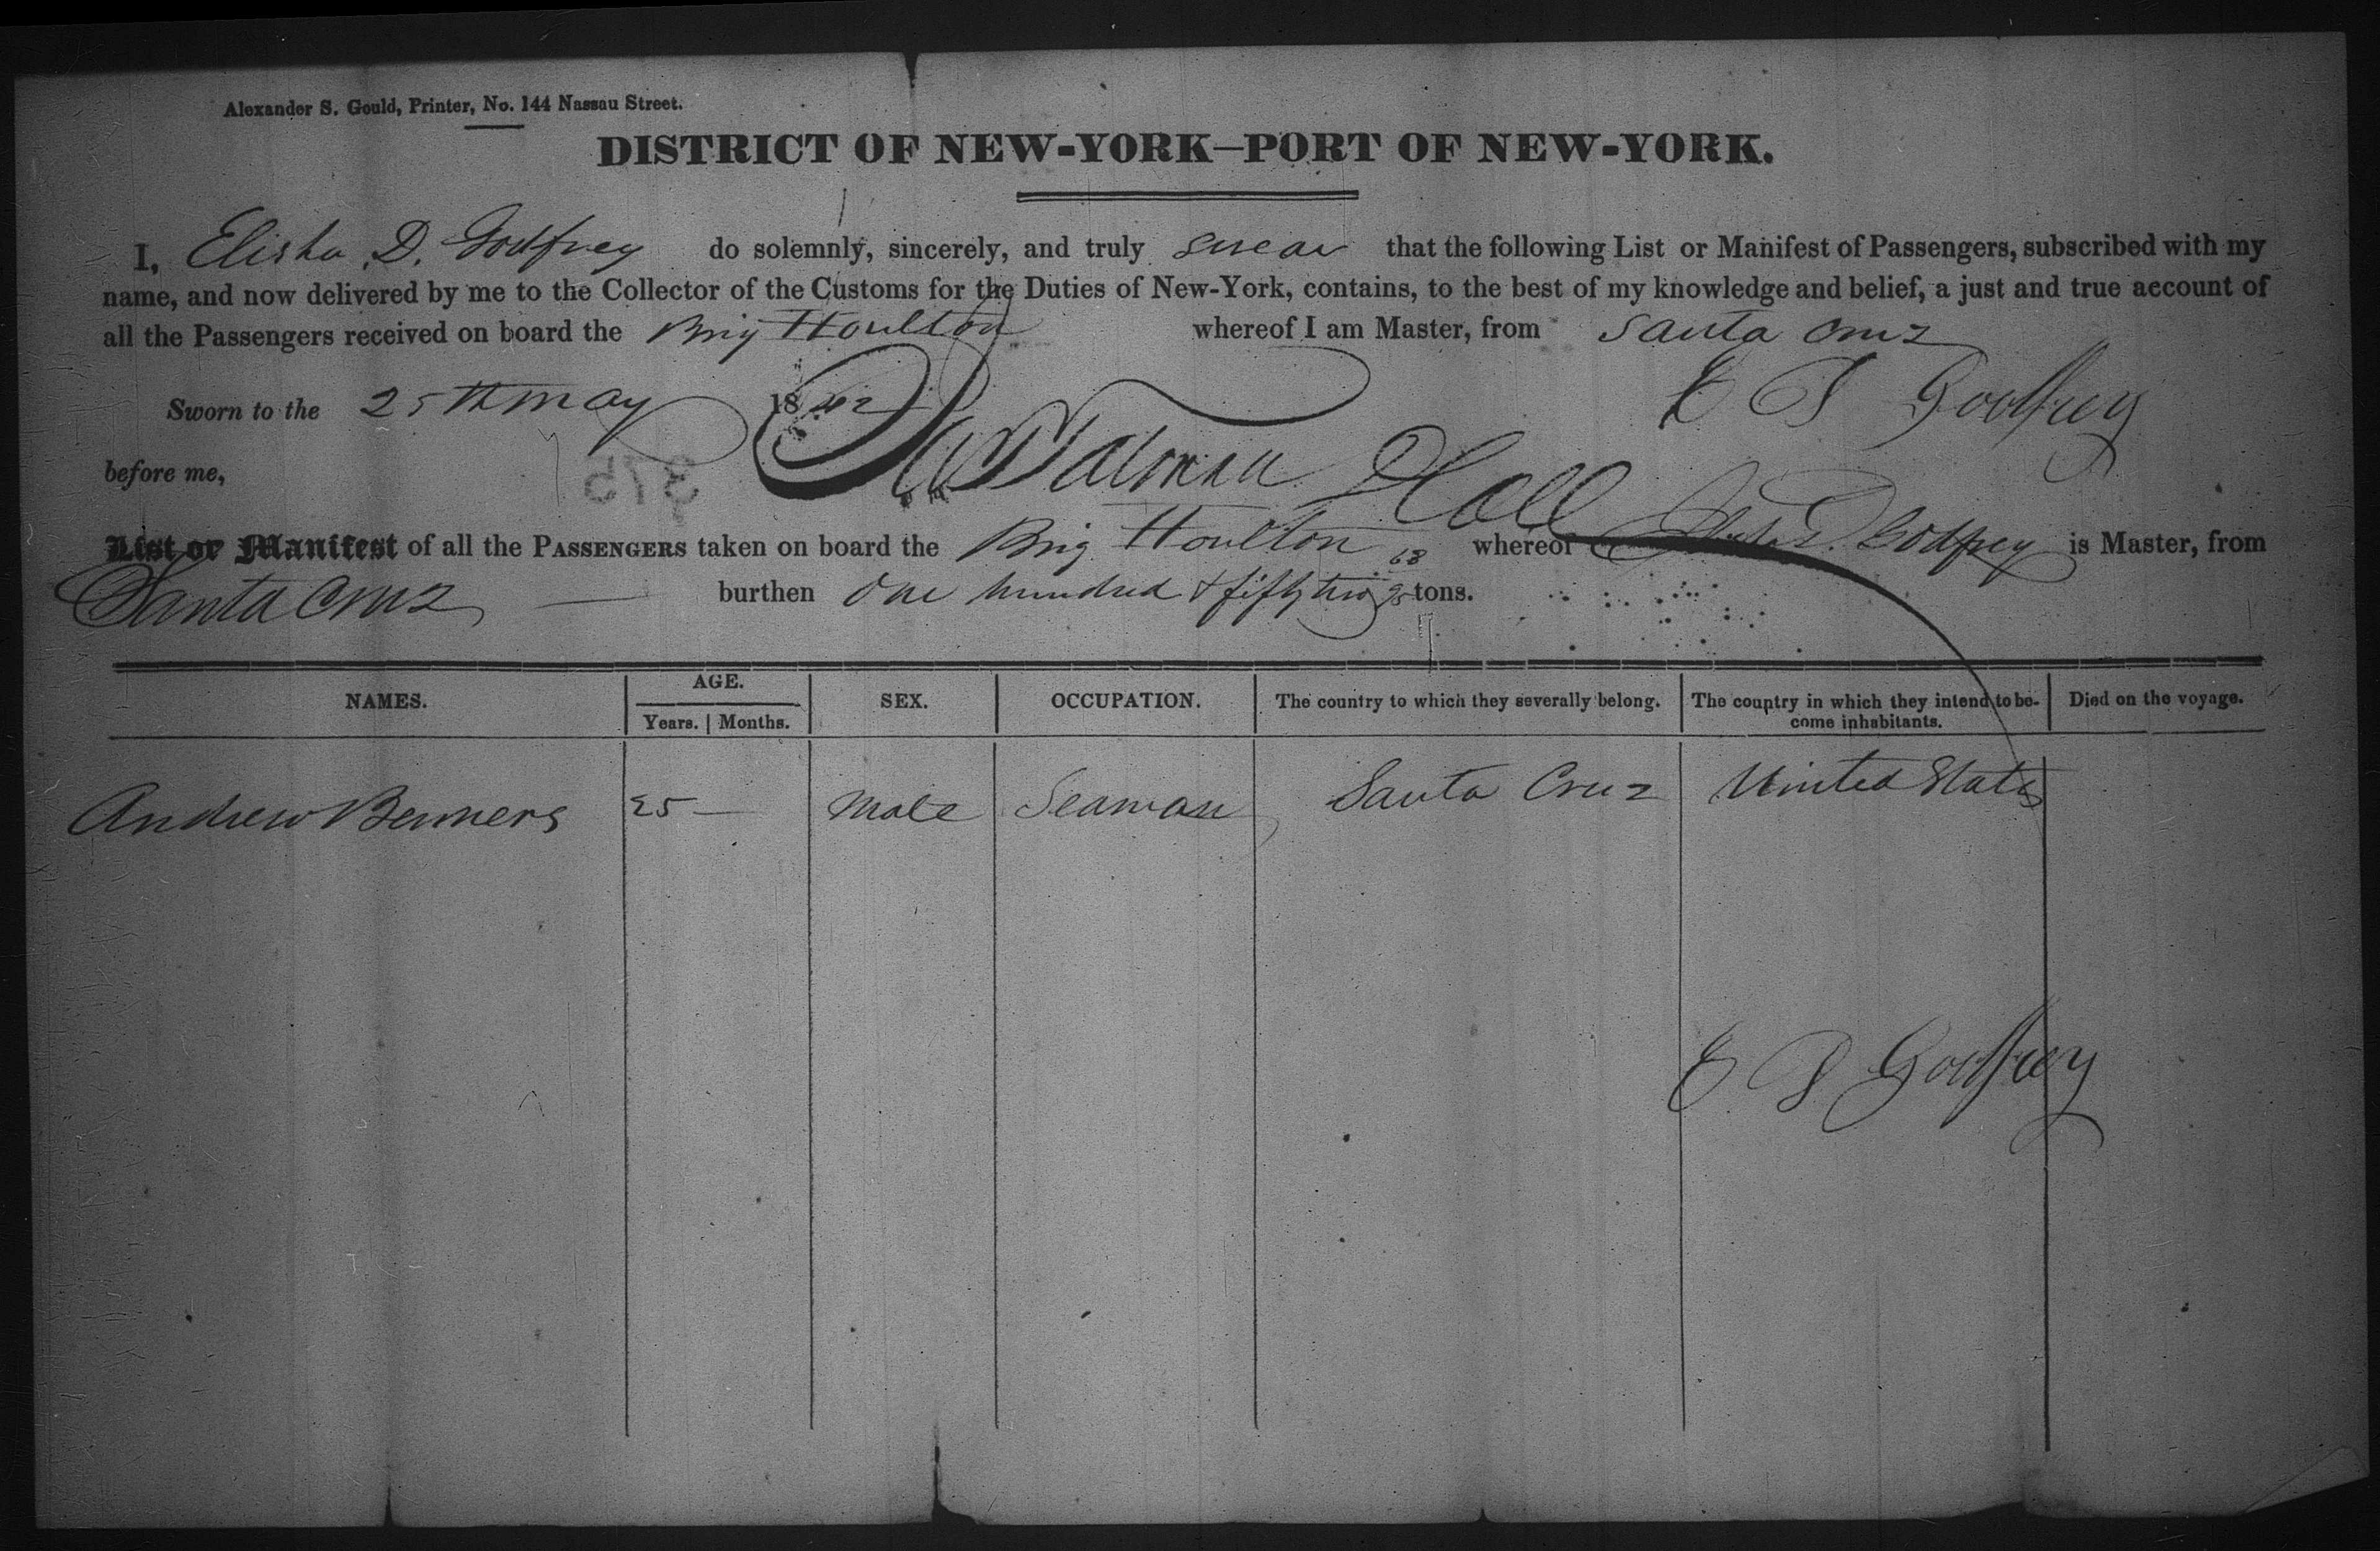 Alexander S. Gould, Printer, No. 144 Nassau Street.
DISTRICT OF NEW-YORK—PORT OF NEW-YORK.
I, Elisha D. Godfrey do solemnly, sincerely, and truly swear that the following List or Manifest of Passengers, subscribed with my
name, and now delivered by me to the Collector of the Customs for the Duties of New-York, contains, to the best of my knowledge and belief, a just and true account of
all the Passengers received on board the Brig Houlton whereof I am Master, from Santa Cruz
Sworn to the 25th May 1842 E D Godfrey
before me, Hall
375
List or Manifest of all the PASSENGERS taken on board the Brig Houlton whereof Elisha D. Godfrey is Master, from
Santa Cruz — burthen One hundred & fifty two 68/95 tons.
NAMES. AGE. SEX. OCCUPATION. The country to which they severally belong. The country in which they intend to be- Died on the voyage.
Years. Months. come inhabitants.
Andrew Benners 25 — Male Seaman Santa Cruz United States
E D Godfrey